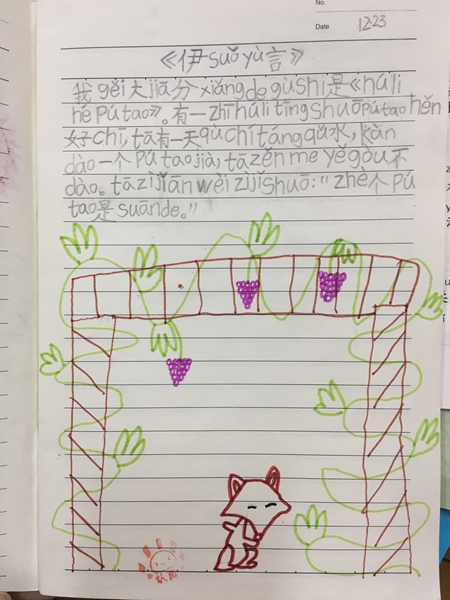 No.
Date 12-23
《伊suǒ yù言》
我gěi大jiā分xiǎng de gù shi是《hú li
hé Pú tao》。有一zhī hú li tīng shuō Pú tao hěn
好chī, tā有一天qù chí táng qǔ水, kàn
dào一个Pú tao jià, tā zěn me yě gòu不
dào。tā zì jǐ ān wèi zì jǐ shuō:"zhè个Pú
tao是suān de。"